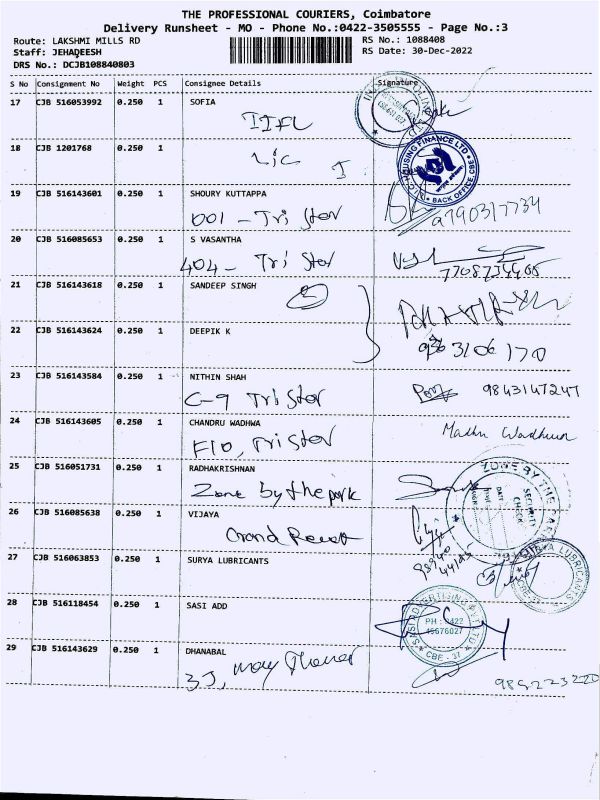 THE PROFESSIONAL COURIERS, Coimbatore
Delivery Runsheet - MO - Phone No.:0422-3505555 - Page No.:3
Route: LAKSHMI MILLS RD RS No.: 1088408
Staff: JEHAQEESH RS Date: 30-Dec-2022
DRS No.: DCJB108840803
S No Consignment No Weight PCS Consignee Details Signature
17 CJB 516053992 0.250 1 SOFIA
IIFL
18 CJB 1201768 0.250 1
Lic
HOUSING FINANCE LTD BACK OFFICE CBE
19 CJB 516143601 0.250 1 SHOURY KUTTAPPA
001 - Tri Star 9790317734
20 CJB 516085653 0.250 1 S VASANTHA
404 - Tri Star
21 CJB 516143618 0.250 1 SANDEEP SINGH
22 CJB 516143624 0.250 1 DEEPIK K
23 CJB 516143584 0.250 1 NITHIN SHAH
C-9 Tri Star 9843147247
24 CJB 516143605 0.250 1 CHANDRU WADHWA
F10, Tri Star Madhu
25 CJB 516051731 0.250 1 RADHAKRISHNAN
Zone by the park
ZONE BY THE PARK SECURITY CHECK DATE
26 CJB 516085638 0.250 1 VIJAYA
Grand
27 CJB 516063853 0.250 1 SURYA LUBRICANTS
SURYA LUBRICANTS
28 CJB 516118454 0.250 1 SASI ADD
SASI ADVERTISING PVT LTD PH : 0422 4567602 CBE - 37
29 CJB 516143629 0.250 1 DHANABAL
3J, May Flower